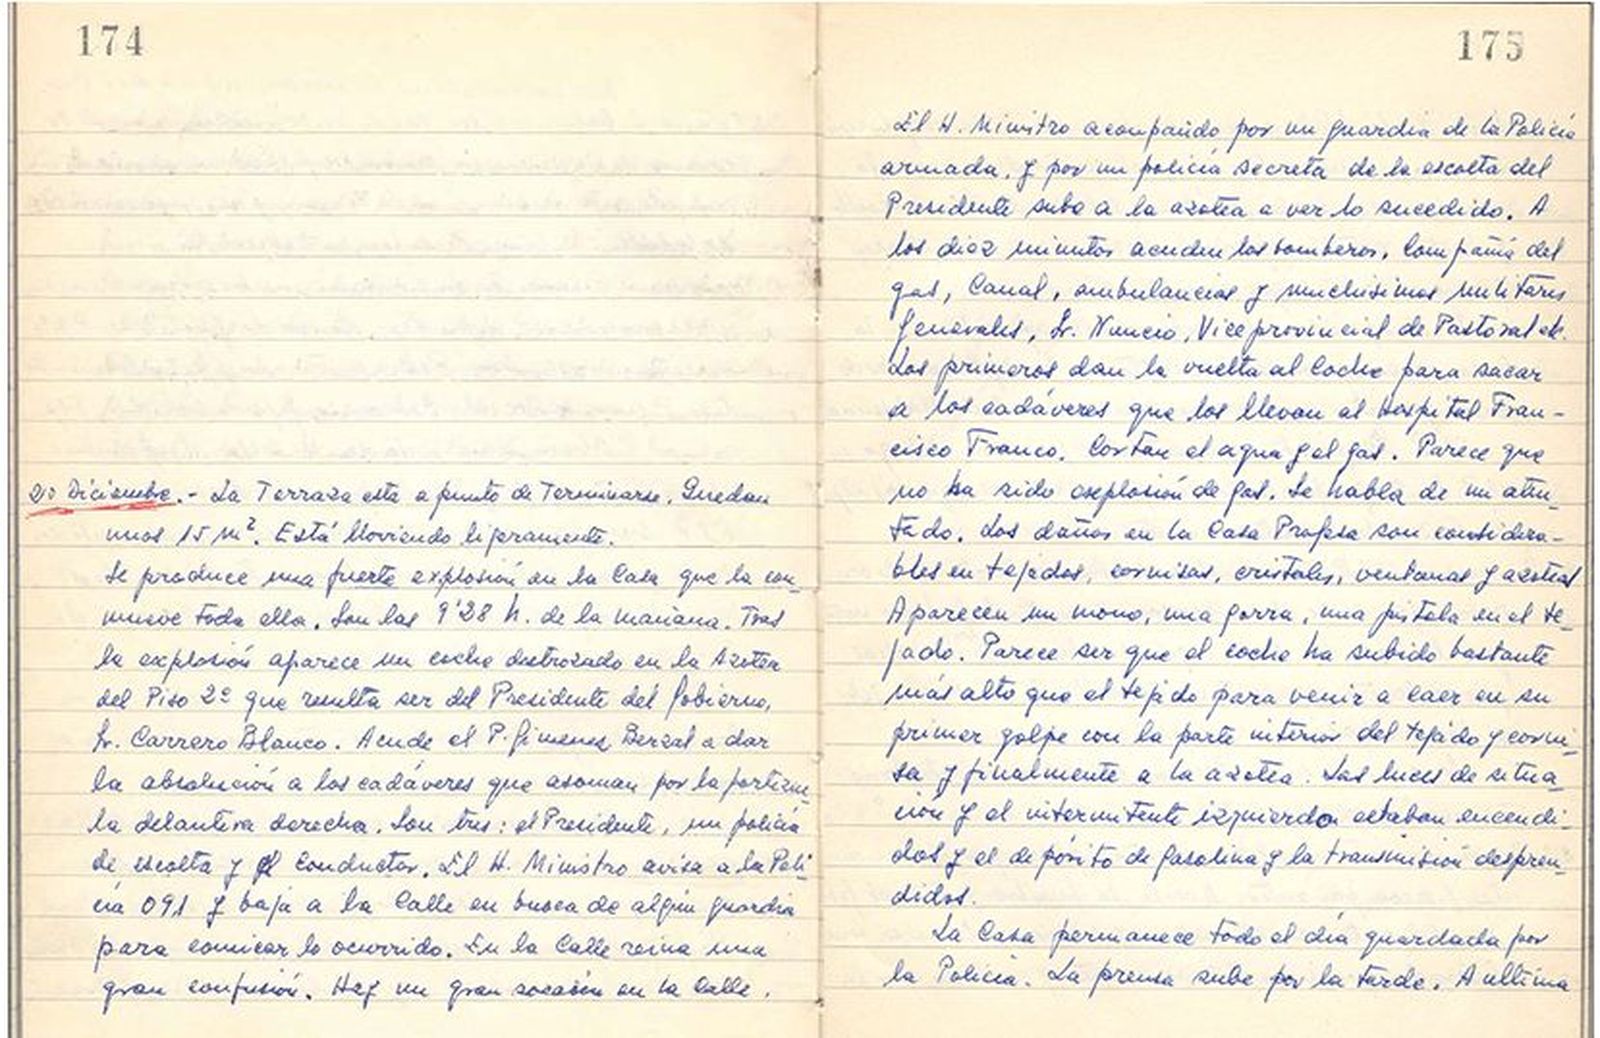 174
20 Diciembre.- La Terraza esta a punto de Terminarse. Quedan
unos 15 m². Está lloviendo ligeramente.
Se produce una fuerte explosión en la Casa que la con_
mueve toda ella. Son las 9'28 h. de la mañana. Tras
la explosión aparece un coche destrozado en la Azotea
del Piso 2º que resulta ser del Presidente del Gobierno,
Sr. Carrero Blanco. Acude el P. Gimenez Berzal a dar
la absolución a los cadáveres que asoman por la portezue_
la delantera derecha. Son tres: el Presidente, un policía
de escolta y el conductor. El H. Ministro avisa a la Poli_
cía 091 y baja a la Calle en busca de algún guardia
para comicar lo ocurrido. En la Calle reina una
gran confusión. Hay un gran socavón en la Calle.
175
El H. Ministro acompañdo por un guardia de la Policía
armada, y por un policía secreta de la escolta del
Presidente sube a la azotea a ver lo sucedido. A
los diez minutos acuden los bomberos, Compañía del
gas, Canal, ambulancias y muchisimos militares
Generales, Sr. Nuncio, Viceprovincial de Pastoral etc.
Los primeros dan la vuelta al Coche para sacar
a los cadáveres que los llevan al Hospital Fran-
cisco Franco. Cortan el agua y el gas. Parece que
no ha sido explosión de gas. Se habla de un aten_
tado. Los daños en la Casa Profesa son considera-
bles en tejados, cornisas, cristales, ventanas y azoteas
Aparecen un mono, una gorra, una pistola en el te_
jado. Parece ser que el coche ha subido bastante
más alto que el tejado para venir a caer en su
primer golpe con la parte interior del tejado y corni_
sa y finalmente a la azotea. Las luces de situa_
ción y el intermitente izquierdo estaban encendi_
dos y el depósito de gasolina y la transmisión despren_
didos.
La Casa permanece todo el día guardada por
la Policía. La prensa sube por la tarde. A ultima